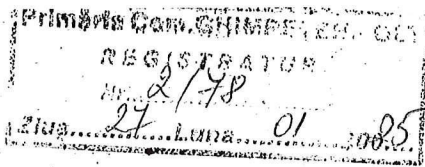 Primăria Com. GHIMPEȚENI OLT
REGISTRATUR
Nr. 2/78
Ziua 27 Luna 01 2005